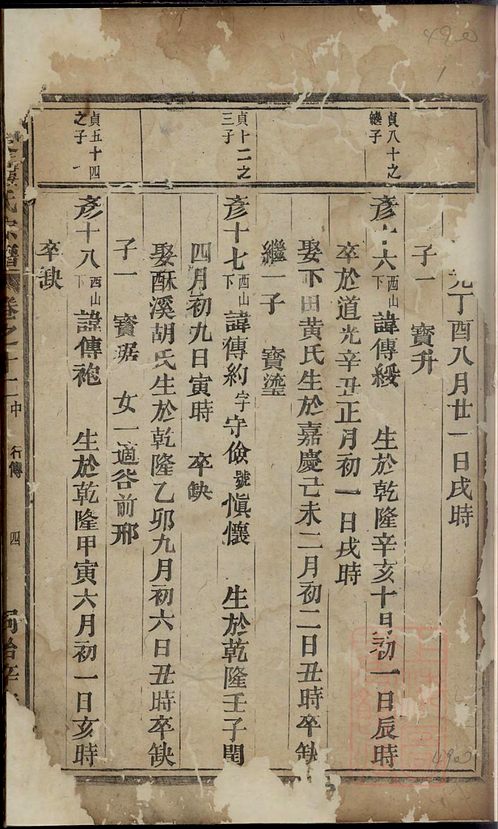 丁酉八月廿一日戌時
子一 寶升
貞八十之
繼子
彥十六西山下諱傳綬 生於乾隆辛亥十月初一日辰時
卒於道光辛丑正月初一日戌時
娶下田黃氏生於嘉慶己未二月初二日丑時卒缺
繼一子 寶鎏
貞十二之
三子
彥十七西山下諱傳約字守儉號慎懷 生於乾隆壬子閏
四月初九日寅時 卒缺
娶酥溪胡氏生於乾隆乙卯九月初六日丑時卒缺
子一 寶琚 女一適谷前邢
貞五十四
之子
彥十八西山下諱傳袍 生於乾隆甲寅六月初一日亥時
卒缺
氏宗譜 卷之十二中 行傳 四
49